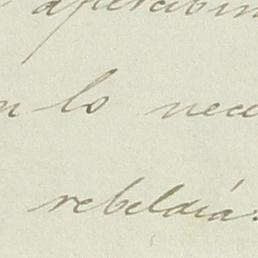 apercibim
n lo nece
rebeldía.